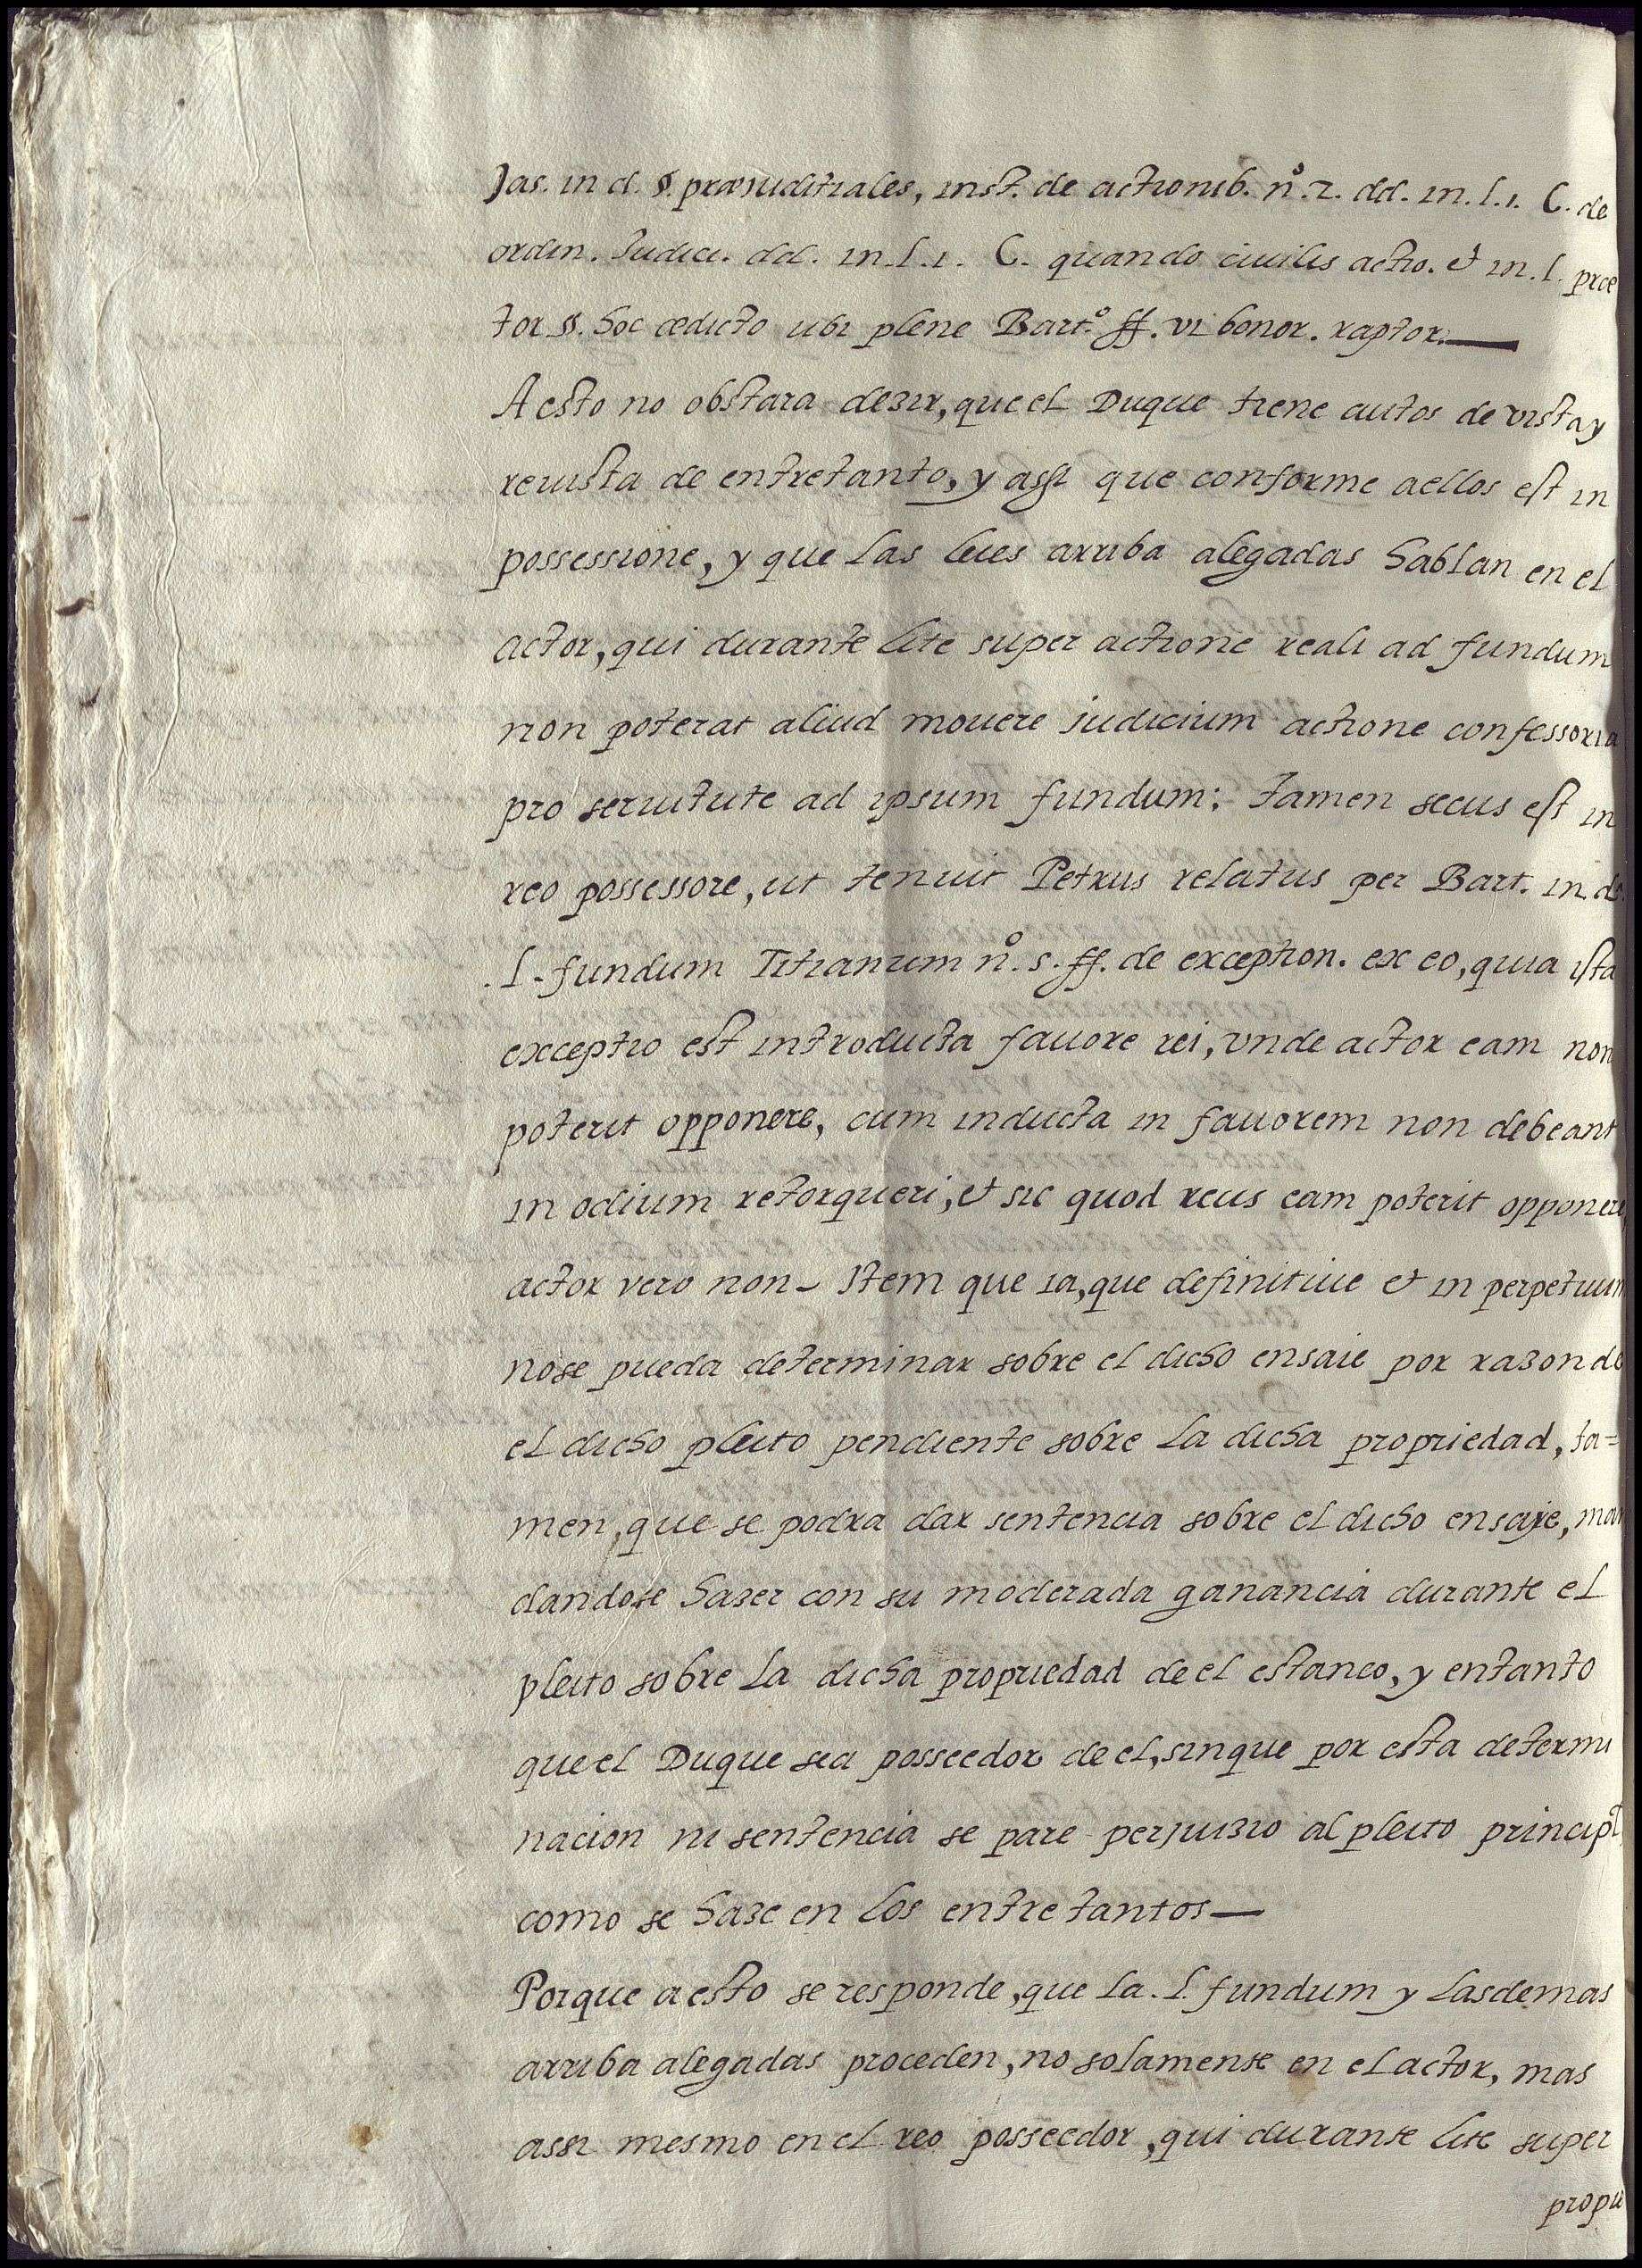 Jas. in d. §. præiuditiales, inst. de actionib. nº. 2. dd. in. l. 1. C. de
ordin. Iudici. dd. in. l. 1. C. quando ciuilis actio. et in. l. præ
tor §. hoc ædicto ubi plene Bart.º ff. vi bonor. raptor.
A esto no obstara dezir, que el Duque tiene autos de vista y
reuista de entretanto, y assi que conforme a ellos est in
possessione, y que las leies arriba alegadas hablan en el
actor, qui durante lite super actione reali ad fundum
non poterat aliud mouere iudicium actione confessoria
pro seruitute ad ipsum fundum; tamen secus est in
reo possessore, ut tenuit Petrus relatus per Bart. in d.
l. fundum Titianum nº. 5. ff. de exception. ex eo, quia ista
exceptio est introducta fauore rei, vnde actor eam non
poterit opponere, cum inducta in fauorem non debeant
in odium retorqueri, et sic quod reus eam poterit opponere
actor vero non - Item que ia, que definitiue et in perpetuum
nose pueda determinar sobre el dicho ensaie por razon de
el dicho pleito pendiente sobre la dicha propriedad, ta=
men, que se podra dar sentencia sobre el dicho ensaye, man
dandose hazer con su moderada ganancia durante el
pleito sobre la dicha propriedad de el estanco, y entanto
que el Duque sea posseedor de el, sinque por esta determi
nacion ni sentencia se pare perjuizio al pleito principl
como se haze en los entretantos—
Porque a esto se responde, que la. l. fundum y lasdemas
arriba alegadas proceden, no solamente en el actor, mas
assi mesmo en el reo posseedor, qui durante lite super
propri